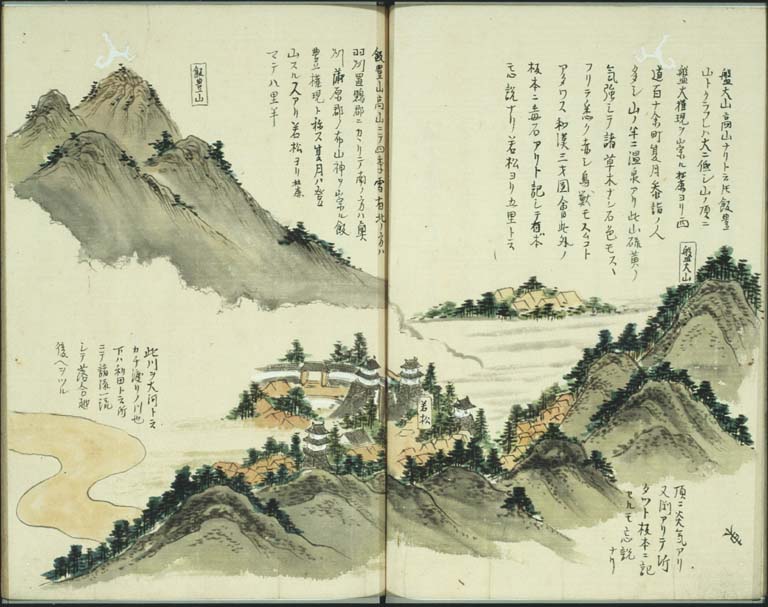 盤大山高山ナリト云圧飯豊
山トクラフレハ大ニ低シ山ノ頂ニ
盤大権現ヲ崇ル麓ヨリ一西
道百十余町夏月参詣ノ人
多シ山ノ半ニ温泉アリ此山硫黄ノ
気強シテ諸草木ナシ石色モス
フリテ悉ク赤シ鳥獣モスムコト
アタワス和漢三才図会曰此外ノ
板本ニ毒石アリト記シテ有
モ妄説ナリ若松ヨリ五里ト云
盤大山
頂ニ炎気アリ
又洞アリテ
タツト板本ニ記
セルモ妄説
ナリ
若松
飯豊山高山ニテ四季雪有北ノ方ハ
羽州置賜郡ニカヽリテ南ノ方ハ奥
州蒲原郡ノ布山神ヲ崇ル飯
豊権現ト称ス夏月ハ登
山スル人アリ若松ヨリ麓
マテ八里半
飯豊山
此川ヲ大河ト云
カチ渡リノ川也
下ハ利田ト云所
ニテ諸流一流
シテ落合越
後ヘヲツル